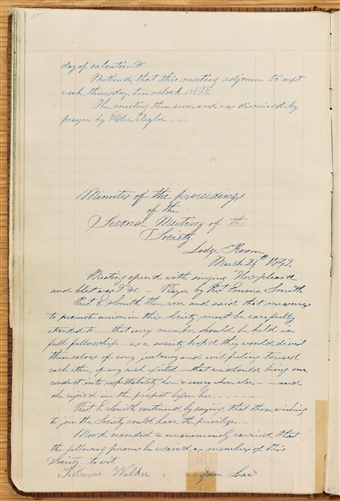 day of salvation &c.
Motioned, that this meeting adjourn to next
week, thursday, ten o'clock A.M.
The meeting then arose and was dismissed by
prayer by Elder Taylor
Minutes of the proceedings
of the
Second Meeting of the
Society.
Lodge Room,
March 24th 1842.
Meeting opened with singing "How pleas'd
and blest was I" &c. Prayer by Prest Emma Smith
Prest E. Smith then rose and said that measures
to promote union in this Society must be carefully
attended to — that every member should be held in
full fellowship — as a society, hoped they would divest
themselves of every jealousy and evil feeling toward
each other, if any such existed — that we should bring our
conduct into respectability here & every where else — said
she rejoiced in the prospect before her
Prest E. Smith continued by saying, that those wishing
to join the Society could have the privilege
Mov'd, seconded & unanimously carried, that
the following persons be receiv'd as members of this
Society, to wit.
Walker